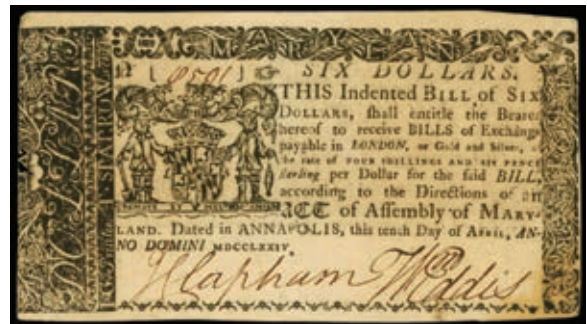 MARYLAND
No 8501
SIX DOLLARS.
THIS Indented BILL of SIX
DOLLARS, ſhall entitle the Bearer
hereof to receive BILLS of Exchange
payable in LONDON, or Gold and Silver, at
the rate of FOUR SHILLINGS AND SIX PENCE
ſterling per Dollar for the ſaid BILL,
according to the Directions of an
ACT of Aſſembly of MARY-
LAND. Dated in ANNAPOLIS, this tenth Day of APRIL, AN-
NO DOMINI MDCCLXXIV
J Clapham W Eddis